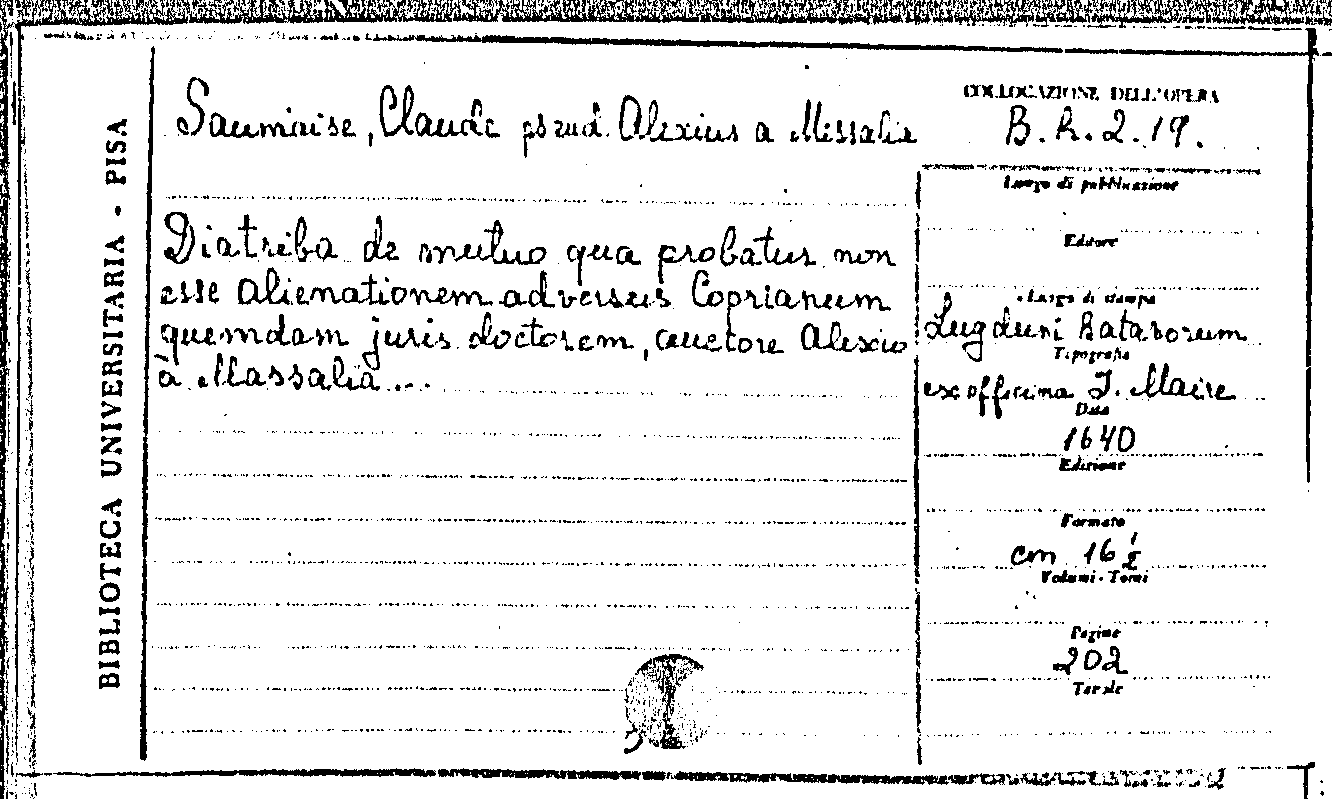 BIBLIOTECA UNIVERSITARIA - PISA
Saumaise, Claude pseud. Alexius a Massalia
COLLOCAZIONE DELL'OPERA
B. h. 2. 19.
Diatriba de mutuo qua probatur non
esse alienationem adversus Coprianum
quemdam juris doctorem, auctore Alexio
à Massalia ...
Luogo di pubblicazione
Editore
Luogo di stampa
Lugduni Batavorum
Tipografia
ex officina J. Maire
Data
1640
Edizione
Formato
cm 16 ½
Volumi - Tomi
Pagine
202
Tavole